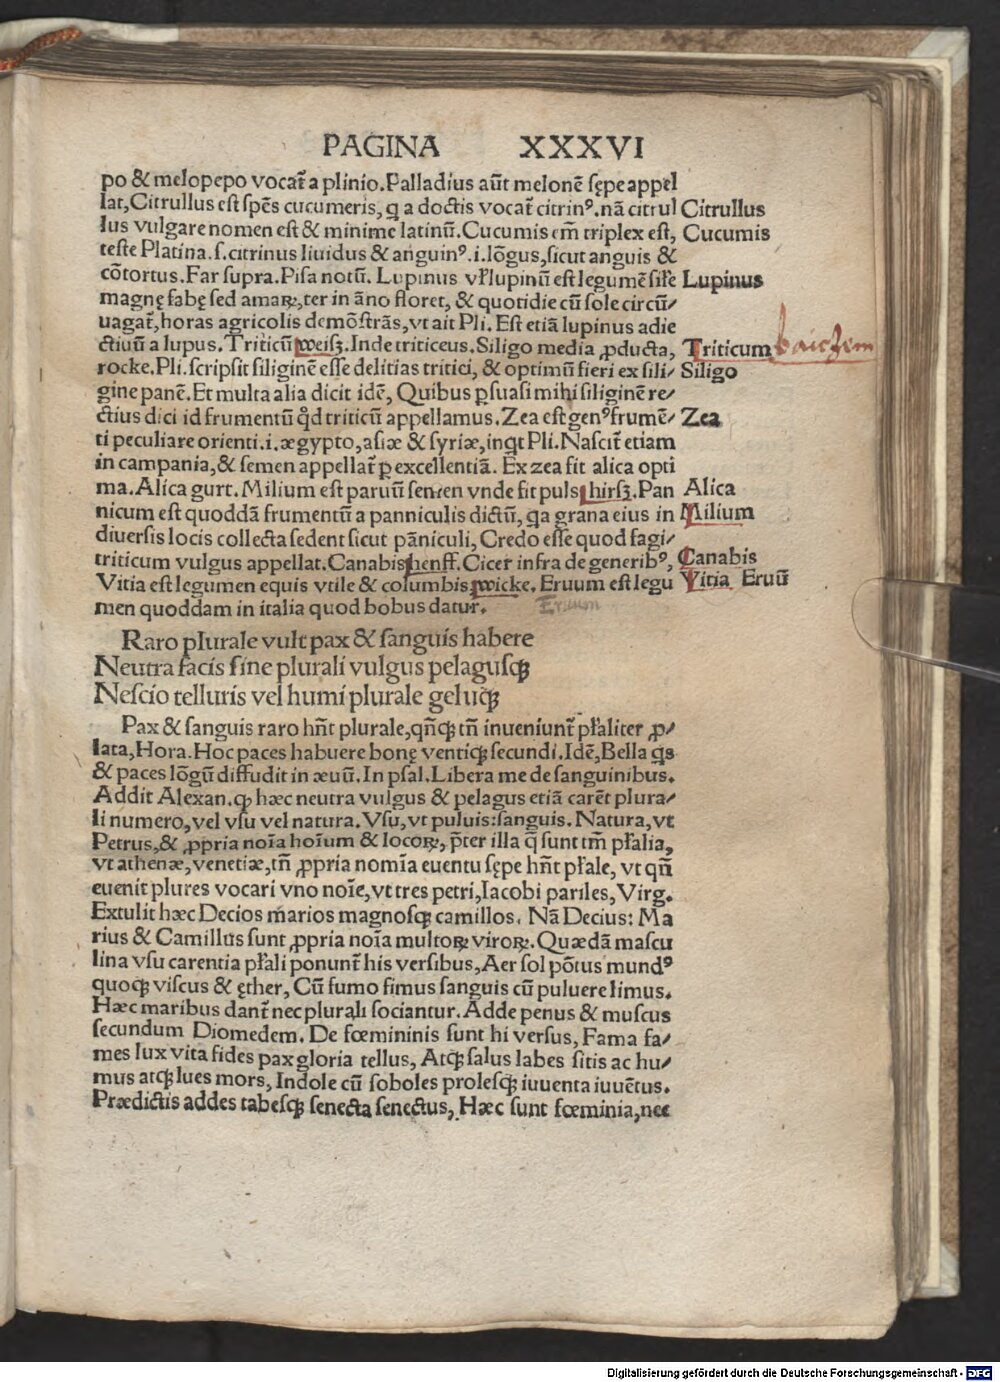 PAGINA XXXVI
po & melopepo vocat̃ a plinio. Palladius aũt melonẽ sępe appel
lat, Citrullus est spẽs cucumeris, q a doctis vocat̃ citrinꝰ. nã citrul Citrullus
lus vulgare nomen est & minime latinũ. Cucumis em̃ triplex est, Cucumis
teste Platina. s. citrinus liuidus & anguinꝰ. i. lõgus, sicut anguis &
cõtortus. Far supra. Pisa notũ. Lupinus vl̃ lupinũ est legumẽ sil̃e Lupinus
magnę fabę sed amaꝝ, ter in ãno floret, & quotidie cũ sole circũ/
uagat̃, horas agricolis demõstrãs, vt ait Pli. Est etiã lupinus adie
ctiuũ a lupus. Triticũ weisz. Inde triticeus. Siligo media ꝓducta, Triticum baiczem
rocke. Pli. scripsit siliginẽ esse delitias tritici, & optimũ fieri ex sili/ Siligo
gine panẽ. Et multa alia dicit idẽ, Quibus ꝑsuasi mihi siliginẽ re/
ctius dici id frumentũ qd̃ triticũ appellamus. Zea est genꝰ frumẽ/ Zea
ti peculiare orienti. i. ægypto, asiæ & syriæ, inqt Pli. Nascit̃ etiam
in campania, & semen appellat̃ ꝑ excellentiã. Ex zea fit alica opti
ma. Alica gurt. Milium est paruũ semen vnde fit puls hirsz. Pan Alica
nicum est quoddã frumentũ a panniculis dictũ, qa grana eius in Milium
diuersis locis collecta sedent sicut pãniculi, Credo esse quod fagi/
triticum vulgus appellat. Canabis henff. Cicer infra de generibꝰ, Canabis
Vitia est legumen equis vtile & columbis wicke. Eruum est legu Vitia Eruũ
men quoddam in italia quod bobus datur. Eruum
Raro plurale vult pax & sanguis habere
Neutra facis sine plurali vulgus pelagusqꝫ
Nescio telluris vel humi plurale geluqꝫ
Pax & sanguis raro hñt plurale, qñqꝫ tñ inueniunt̃ pl̃aliter ꝓ/
lata, Hora. Hoc paces habuere bonę ventiqꝫ secundi. Idẽ, Bella qs
& paces lõgũ diffudit in æuũ. In psal. Libera me de sanguinibus.
Addit Alexan. ꝙ hæc neutra vulgus & pelagus etiã carẽt plura/
li numero, vel vsu vel natura. Vsu, vt puluis: sanguis. Natura, vt
Petrus, & ꝓpria noĩa hoĩum & locoꝝ, p̃ter illa q̃ sunt tm̃ pl̃alia,
vt athenæ, venetiæ, tñ ꝓpria nomĩa euentu sępe hñt pl̃ale, vt qñ
euenit plures vocari vno noĩe, vt tres petri, Iacobi pariles, Virg.
Extulit hæc Decios marios magnosqꝫ camillos. Nã Decius: Ma
rius & Camillus sunt ꝓpria noĩa multoꝝ viroꝝ. Quædã mascu
lina vsu carentia pl̃ali ponunt̃ his versibus, Aer sol põtus mundꝰ
quoqꝫ viscus & ęther, Cũ fumo fimus sanguis cũ puluere limus.
Hæc maribus dant̃ nec plurali sociantur. Adde penus & muscus
secundum Diomedem. De fœmininis sunt hi versus, Fama fa/
mes lux vita fides pax gloria tellus, Atqꝫ salus labes sitis ac hu/
mus atqꝫ lues mors, Indole cũ soboles prolesqꝫ iuuenta iuuẽtus.
Prædictis addes tabesqꝫ senecta senectus, Hæc sunt fœminia, nec
Digitalisierung gefördert durch die Deutsche Forschungsgemeinschaft - DFG